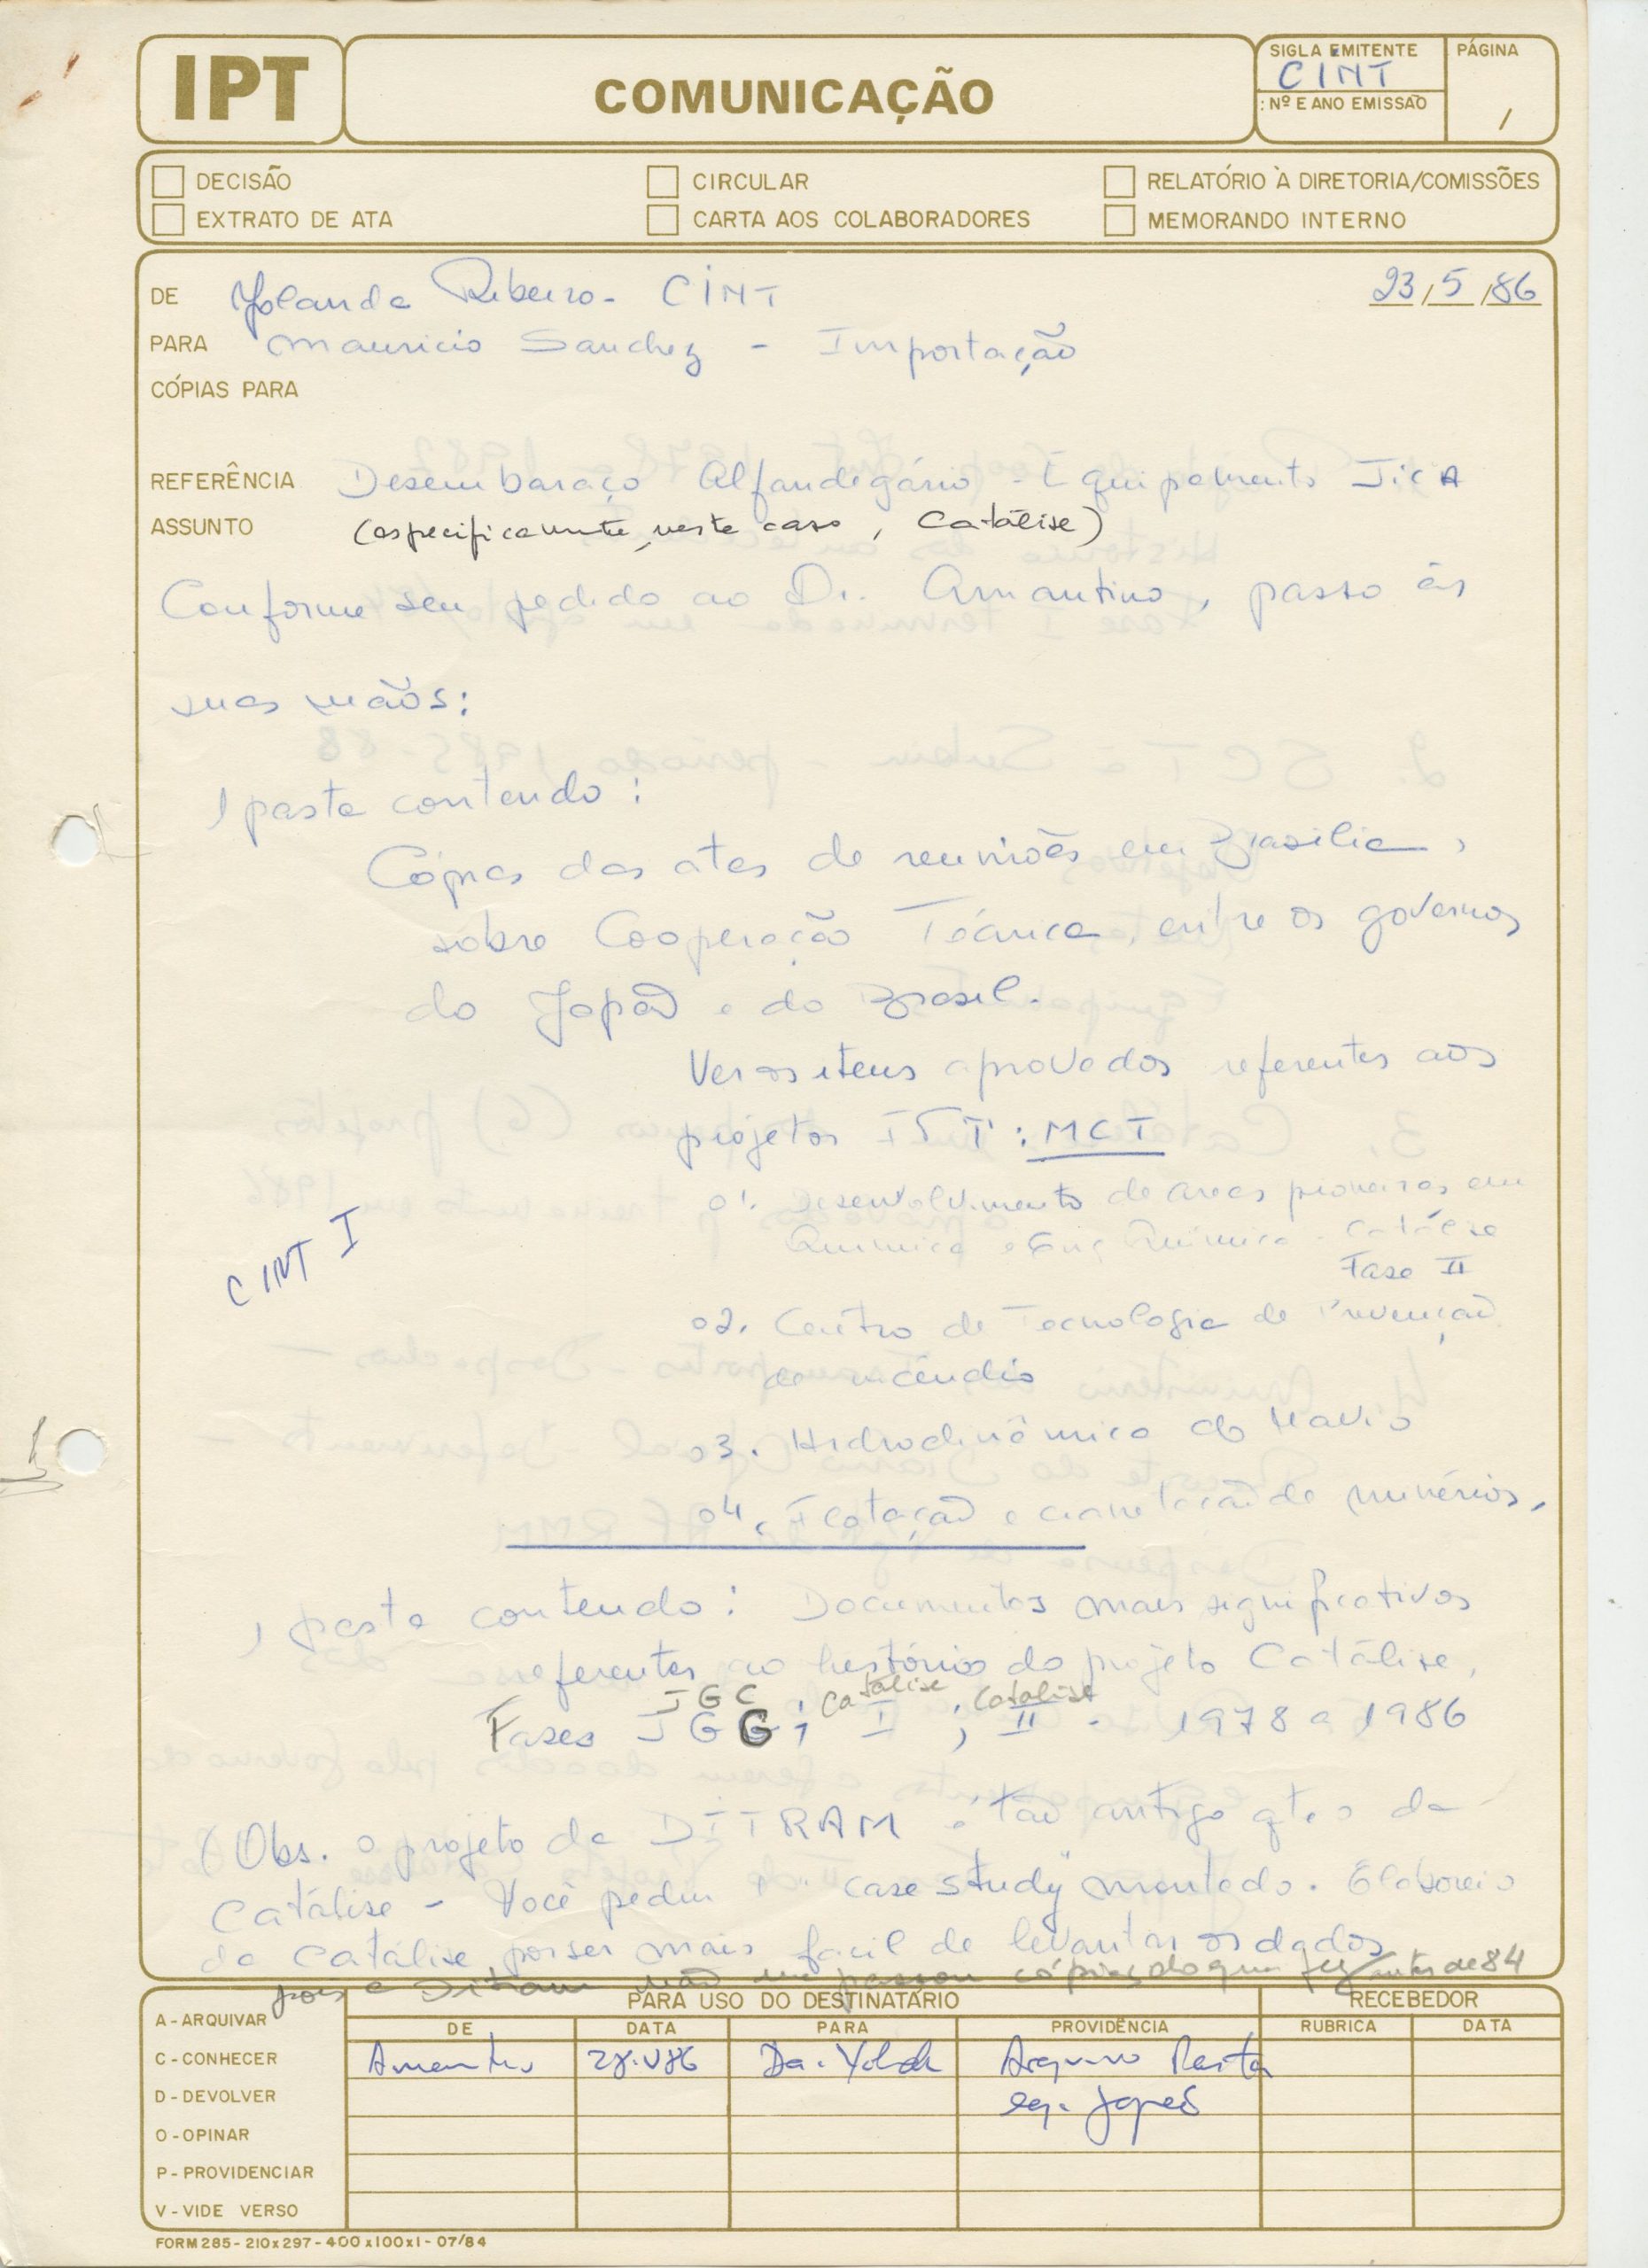 IPT
COMUNICAÇÃO
SIGLA EMITENTE
CINT
Nº E ANO EMISSÃO
PÁGINA
1
DECISÃO
CIRCULAR
RELATÓRIO À DIRETORIA/COMISSÕES
EXTRATO DE ATA
CARTA AOS COLABORADORES
MEMORANDO INTERNO
DE Yolanda Ribeiro - CINT
23/5/86
PARA Mauricio Sanchez - Importação
CÓPIAS PARA
REFERÊNCIA Desembaraço Alfandegário - Equipamento JICA
ASSUNTO (especificamente, neste caso, Catálise)
Conforme seu pedido ao Dr. Amantino, passo às
suas mãos:
1 pasta contendo:
Cópias das atas de reuniões em Brasília,
sobre Cooperação Técnica entre os governos
do Japão e do Brasil.
Ver os itens aprovados referentes aos
projetos IPT: MCT
01. Desenvolvimento de áreas pioneiras em
Química e Eng. Química. Catálise
Fase II
CINT I
02. Centro de Tecnologia de Prevenção
de incêndio
03. Hidrodinâmica do Navio
04. Flotação e de minérios.
1 pasta contendo: Documentos mais significativos
referentes ao histórico do projeto Catálise,
JGC Catálise Catálise
Fases JGC; I ; II - 1978 a 1986
(Obs. o projeto da DITRAM é tão antigo qto o da
Catálise - Você pediu 1 "case study" montado. Elaborei o
da Catálise por ser mais fácil de levantar os dados
pois a Ditram não me passou cópias do que fez antes de 84
PARA USO DO DESTINATÁRIO
RECEBEDOR
A - ARQUIVAR
DE DATA PARA PROVIDÊNCIA RUBRICA DATA
C - CONHECER
Amantino 28.V.86 Da. Yolanda Arquivo Pasta
D - DEVOLVER
Japão
O - OPINAR
P - PROVIDENCIAR
V - VIDE VERSO
FORM 285 - 210x297 - 400x100x1 - 07/84